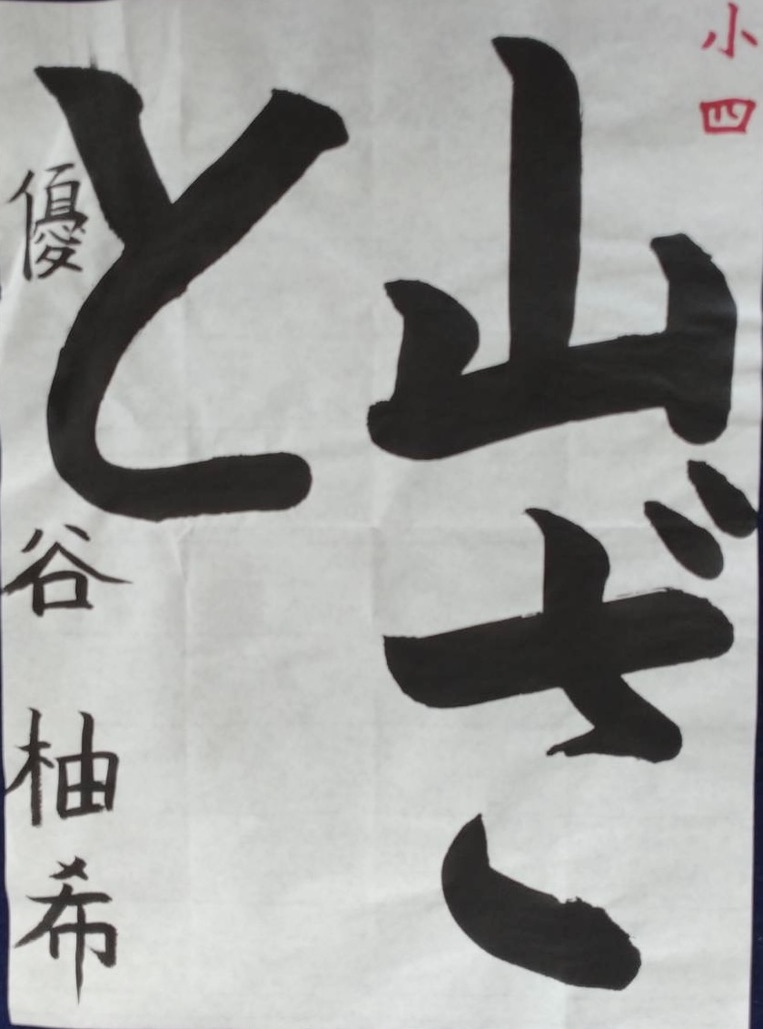 小四
山ざ
と
優谷柚希